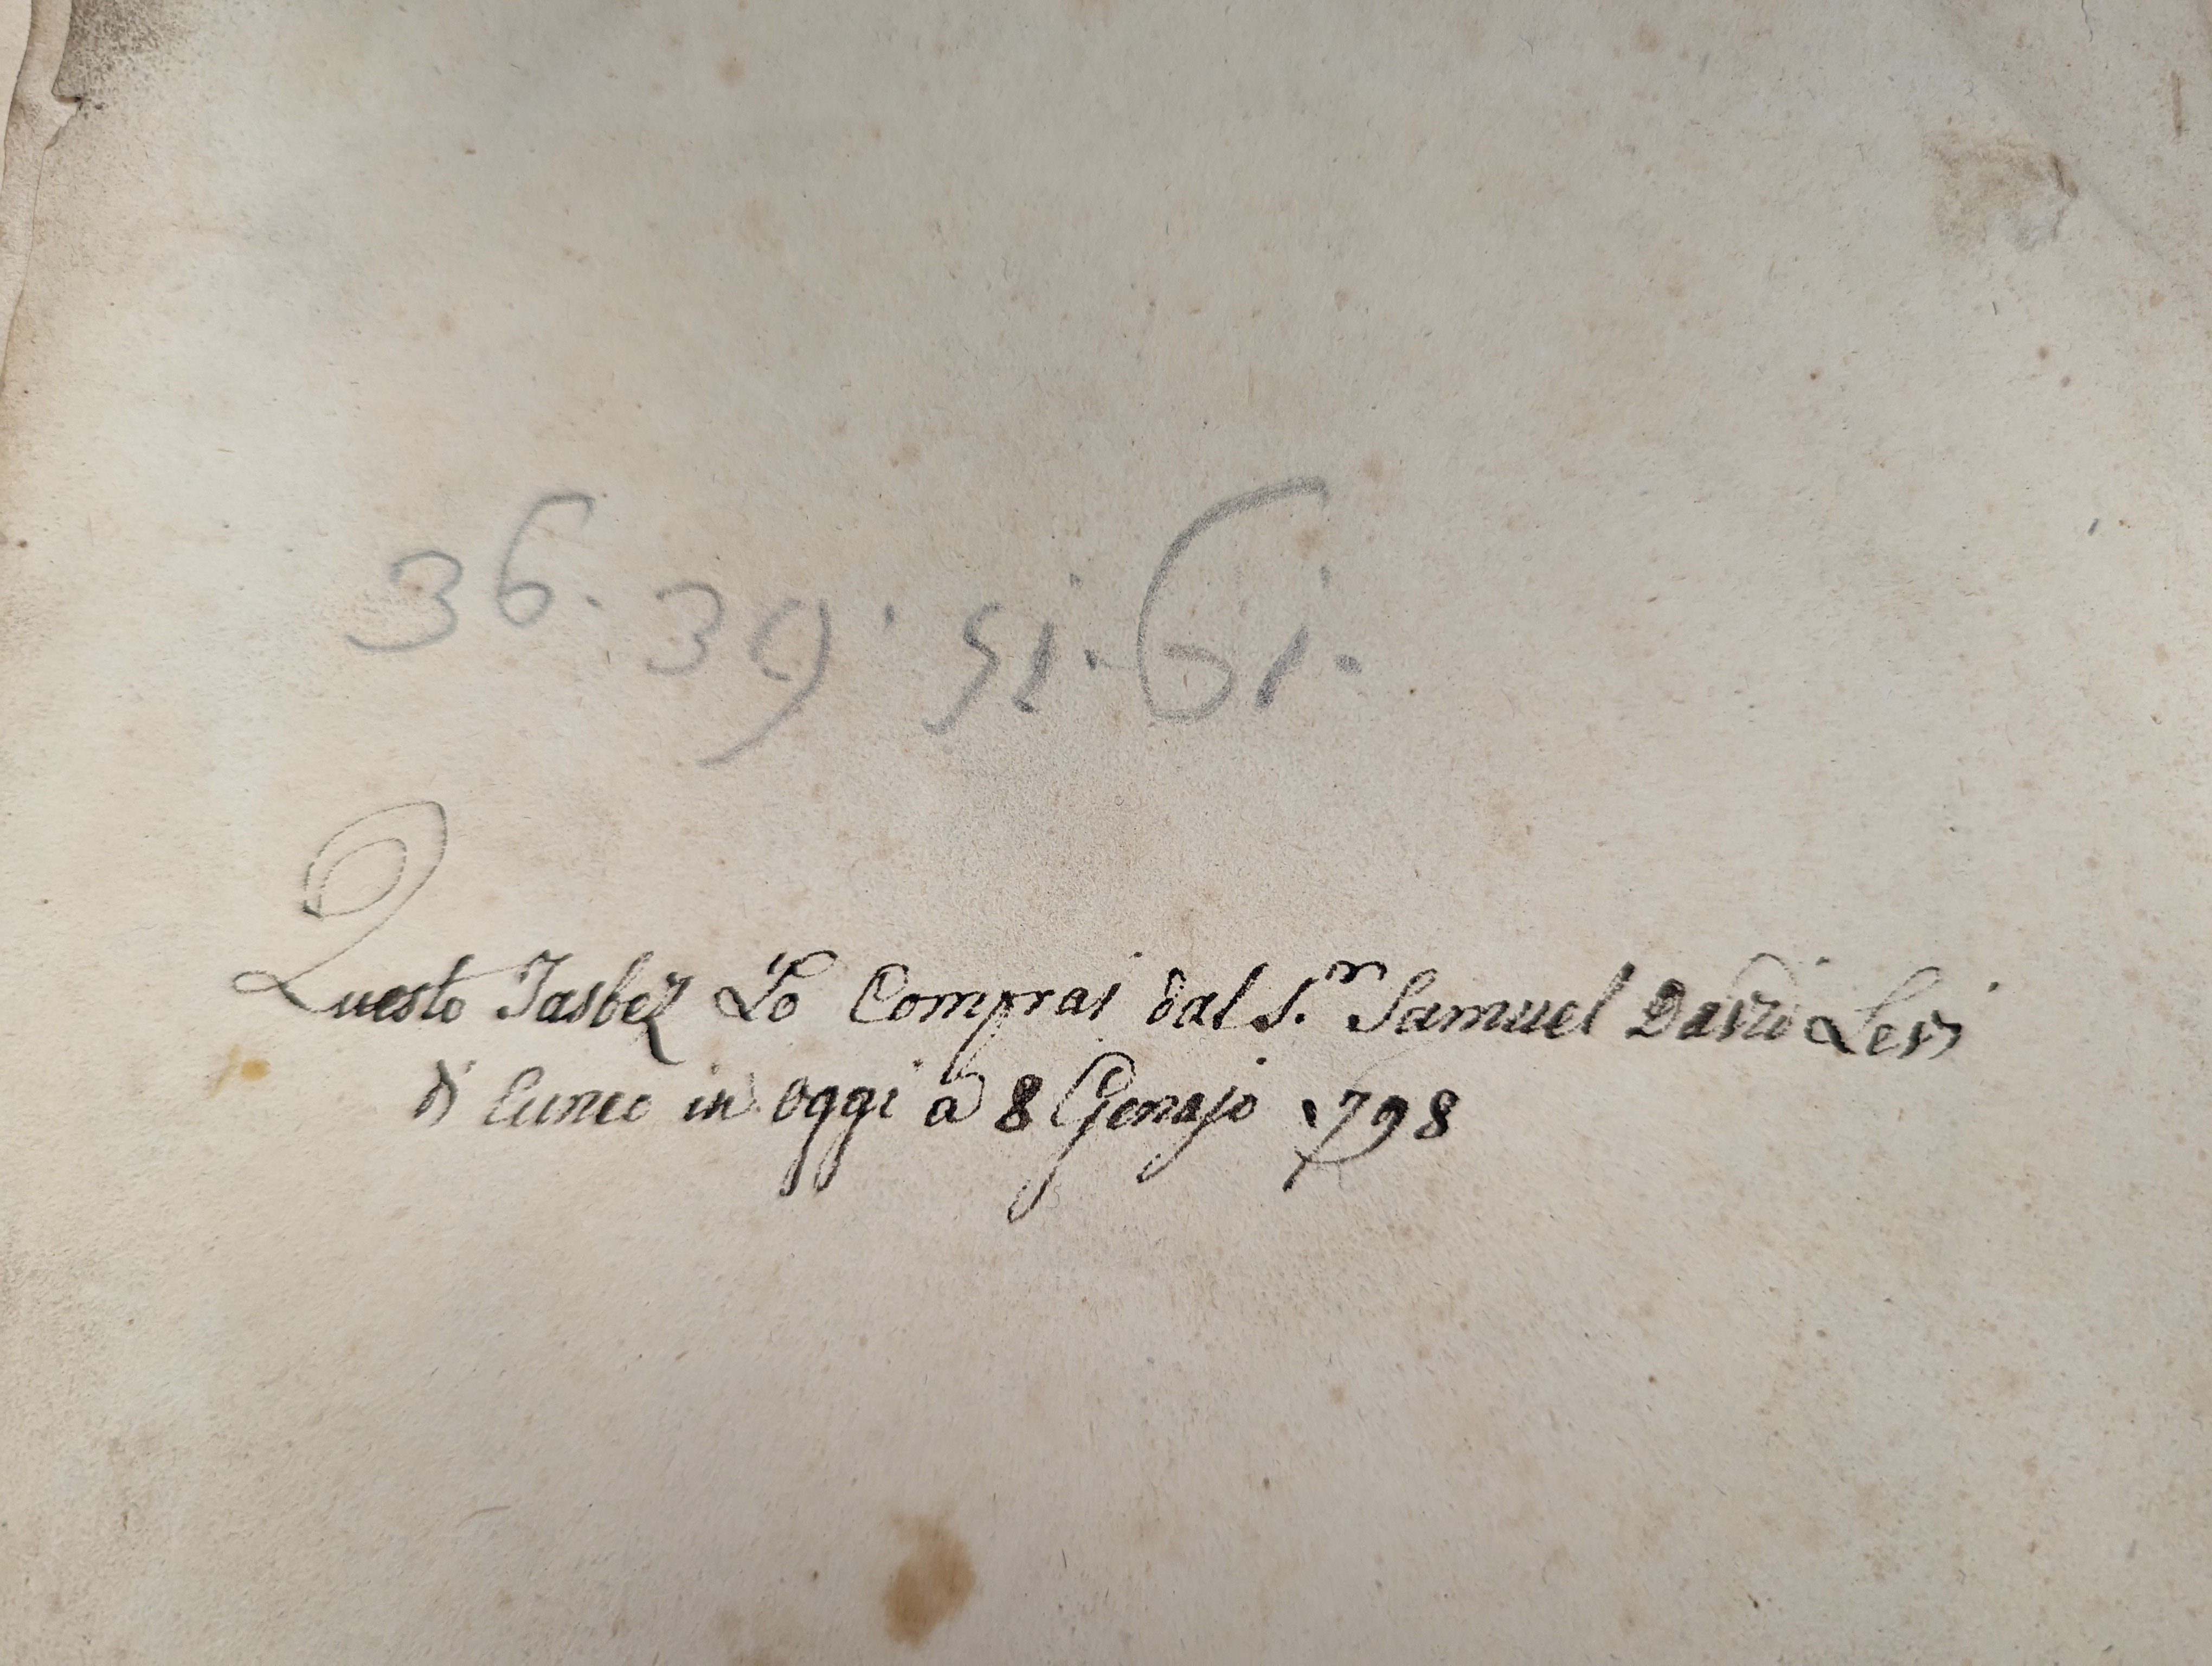 36. 39. 51. 61.
Questo Jasbez Lo Comprai dal S.r Samuel David Levi
di Cuneo in oggi a 8 Genajo 1798